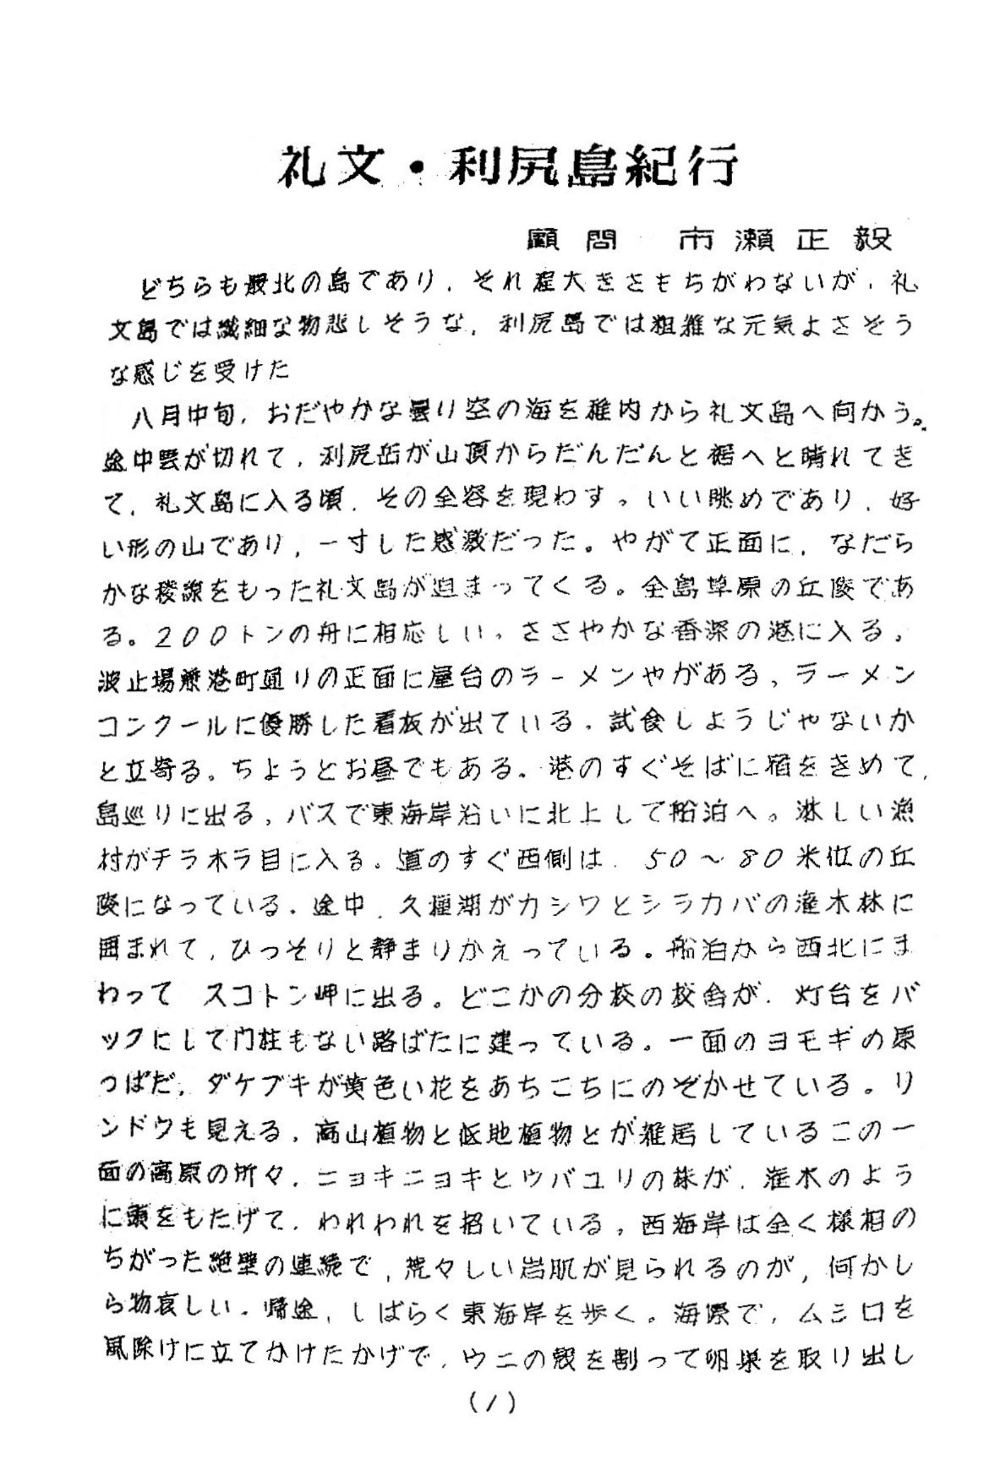 礼文・利尻島紀行
顧問　市瀬正毅
どちらも最北の島であり、それ程大きさもちがわないが、礼
文島では繊細な物悲しそうな、利尻島では粗雑な元気よさそう
な感じを受けた
八月中旬、おだやかな曇り空の海を稚内から礼文島へ向かう。
途中雲が切れて、利尻岳が山頂からだんだんと裾へと晴れてき
て、礼文島に入る頃、その全容を現わす。いい眺めであり、好
い形の山であり、一寸した感激だった。やがて正面に、なだら
かな稜線をもった礼文島が迫まってくる。全島草原の丘陵であ
る。200トンの舟に相応しい、ささやかな香深の港に入る。
波止場兼港町通りの正面に屋台のラーメンやがある、ラーメン
コンクールに優勝した看板が出ている。試食しようじゃないか
と立寄る。ちょうどお昼でもある。港のすぐそばに宿をきめて、
島巡りに出る、バスで東海岸沿いに北上して船泊へ。淋しい漁
村がチラホラ目に入る。道のすぐ西側は、50～80米位の丘
陵になっている。途中、久種湖がカシワとシラカバの潅木林に
囲まれて、ひっそりと静まりかえっている。船泊から西北にま
わって　スコトン岬に出る。どこかの分校の校舎が、灯台をバ
ックにして門柱もない路ばたに建っている。一面のヨモギの原
っぱだ、ダケブキが黄色い花をあちこちにのぞかせている。リ
ンドウも見える、高山植物と低地植物とが雑居しているこの一
面の高原の所々、ニョキニョキとウバユリの株が、潅木のよう
に頭をもたげて、われわれを招いている、西海岸は全く様相の
ちがった絶壁の連続で、荒々しい岩肌が見られるのが、何かし
ら物哀しい。帰途、しばらく東海岸を歩く。海際で、ムシロを
風除けに立てかけたかげで、ウニの殻を割って卵巣を取り出し
(1)